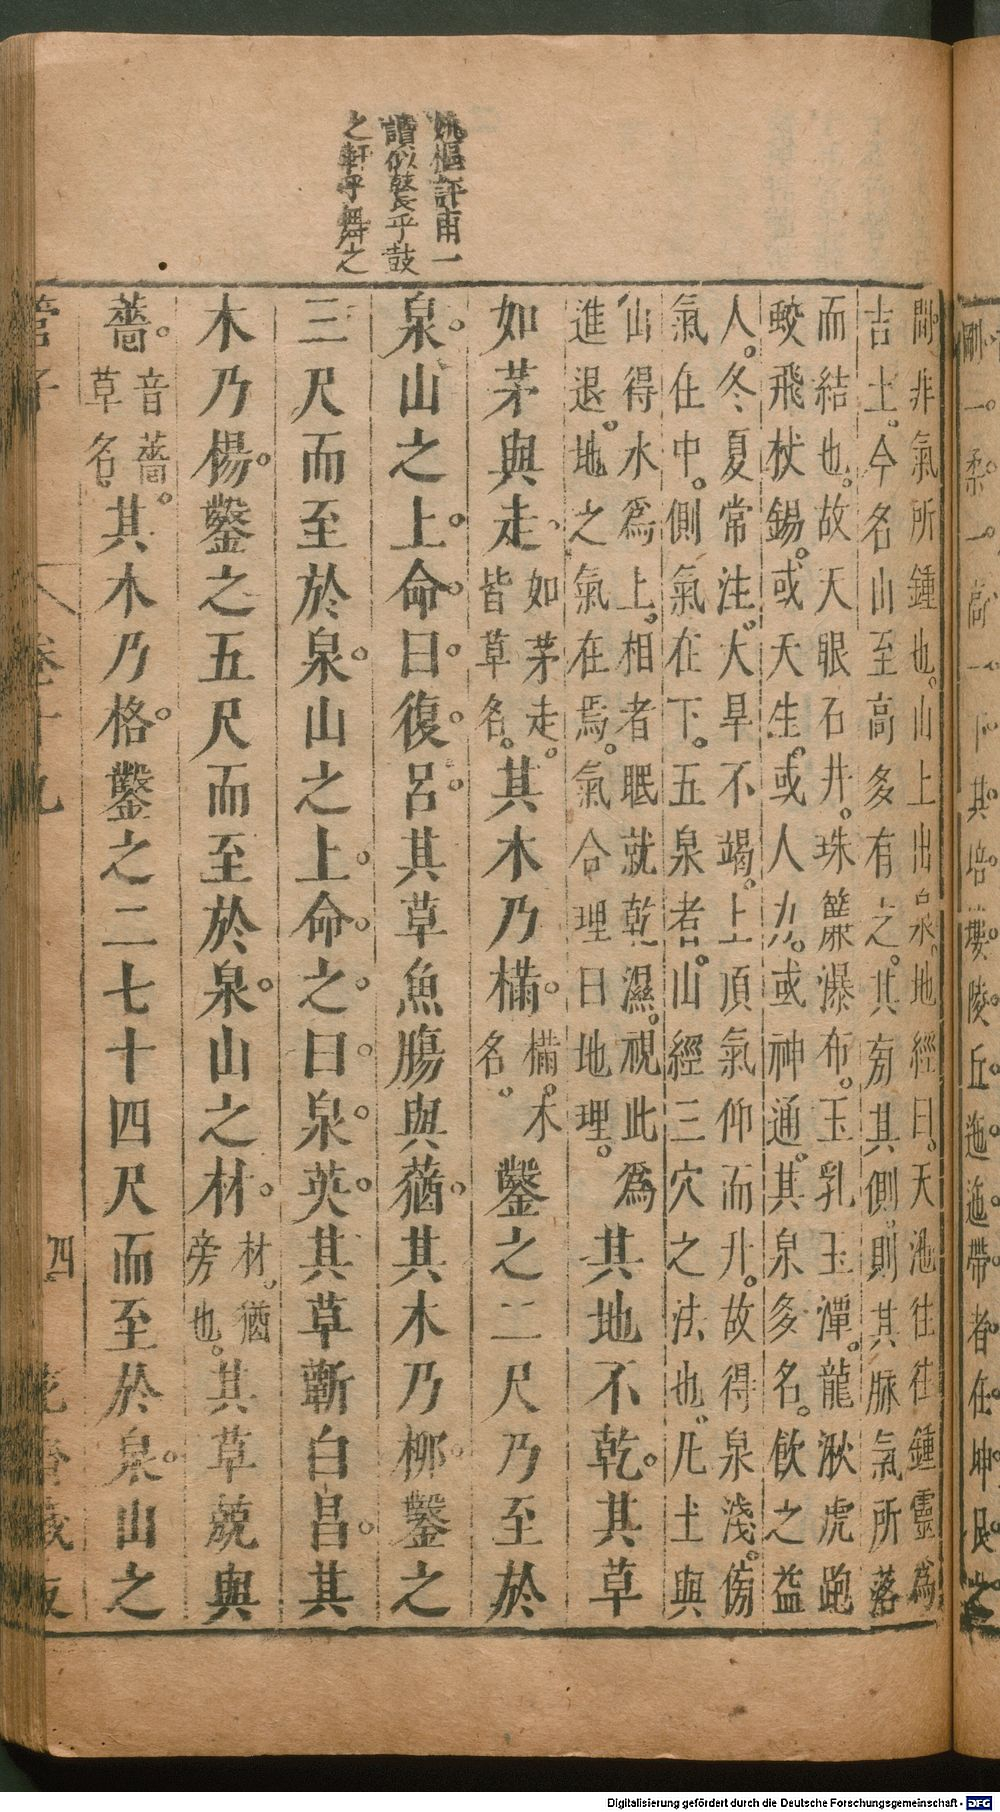 姚樞評甫一
讀似鼚乎鼓
之軒乎舞之
間非氣所鍾也。山上出泉。地經曰。天池往往鍾靈。爲
吉土。今名山至高多有之。其有其側。則其脉氣所落
而結也。故天眼石井。珠簾瀑布。玉乳玉潭。龍湫虎跑
蛟飛杖錫。或天生。或人力。或神通。其泉多名。飲之益
人。冬夏常注。大旱不竭。上頂氣仰而升。故得泉淺。傍
氣住中。側氣在下。五泉者。山經三穴之法也。凡土與
山得水爲上。相者眠就乾濕。視此爲
進退。地之氣在焉。氣合理曰地理。
其地不乾。其草
如茅與走。
如茅走。
皆草名。
其木乃樠。
樠。木
名。
鑿之二尺乃至於
泉。山之上。命曰。復。呂。其草魚腸與蕕。其木乃柳。鑿之
三尺而至於泉。山之上。命。之。曰。泉。英。其草蘄白昌。其
木乃楊。鑿之五尺而至於泉。山之材。
材。猶
旁也。
其草兢與
薔。
音薔。
草名。
其木乃格。鑿之二七十四尺而至於泉。山之
管子
卷十九
四
花齋藏板
剛一柔一
其培塿陵丘迤迤帶者在坤艮之
Digitalisierung gefördert durch die Deutsche Forschungsgemeinschaft - DFG